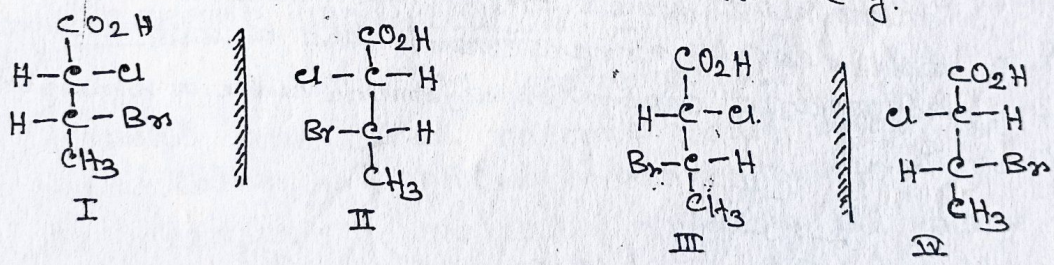 CO2H
H-C-Cl
H-C-Br
CH3
I
CO2H
Cl-C-H
Br-C-H
CH3
II
CO2H
H-C-Cl.
Br-C-H
CH3
III
CO2H
Cl-C-H
H-C-Br
CH3
IV